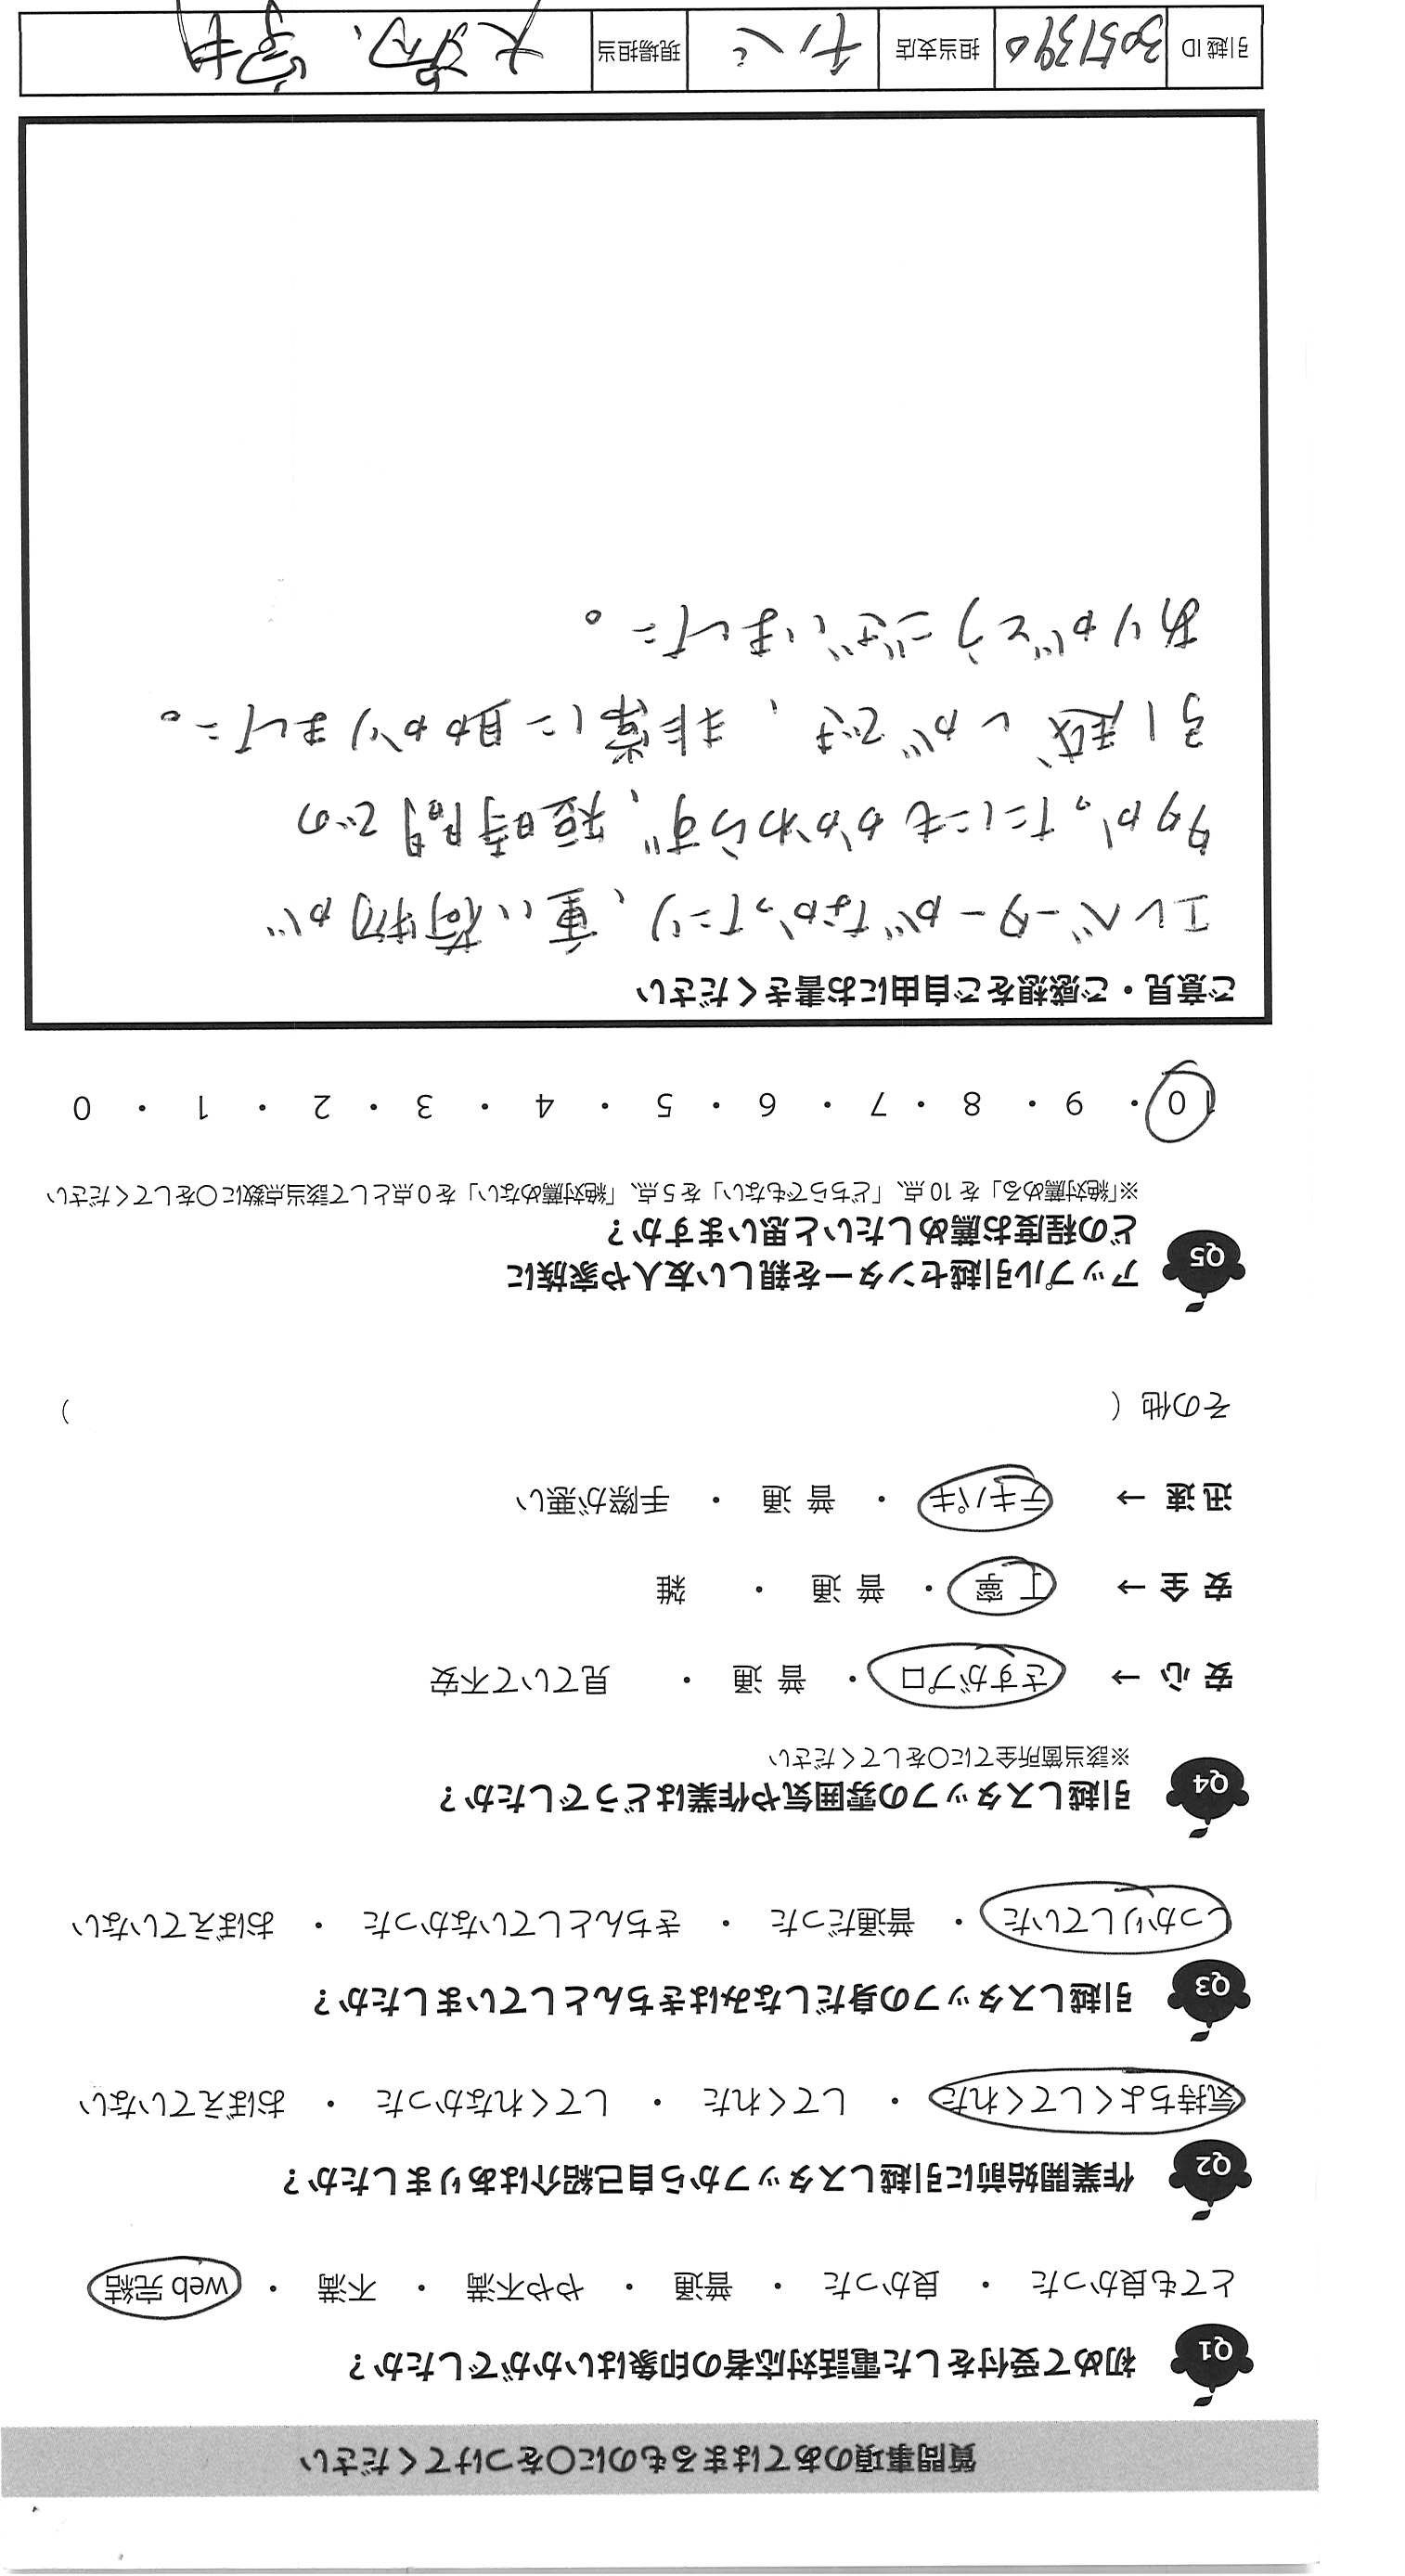 質問事項のあてはまるものに〇をつけてください
Q1 初めて受付をした電話対応者の印象はいかがでしたか？
とても良かった ・ 良かった ・ 普通 ・ やや不満 ・ 不満 ・ web 完結
Q2 作業開始前に引越しスタッフから自己紹介はありましたか？
気持ちよくしてくれた ・ してくれた ・ してくれなかった ・ おぼえていない
Q3 引越しスタッフの身だしなみはきちんとしていましたか？
しっかりしていた ・ 普通だった ・ きちんとしていなかった ・ おぼえていない
Q4 引越しスタッフの雰囲気や作業はどうでしたか？
※該当箇所全てに〇をしてください
安 心 → さすがプロ ・ 普 通 ・ 見ていて不安
安 全 → 丁 寧 ・ 普 通 ・ 雑
迅 速 → テキパキ ・ 普 通 ・ 手際が悪い
その他（ ）
Q5 アップル引越センターを親しい友人や家族に
どの程度お薦めしたいと思いますか？
※「絶対薦める」を 10 点、「どちらでもない」を 5 点、「絶対薦めない」を 0 点として該当点数に〇をしてください
10 ・ 9 ・ 8 ・ 7 ・ 6 ・ 5 ・ 4 ・ 3 ・ 2 ・ 1 ・ 0
ご意見・ご感想をご自由にお書きください
エレベーターがなかったり、重い荷物が
多かったにもかかわらず、短時間での
引越しができ、非常に助かりました。
ありがとうございました。
引越 ID 3051390 担当支店 チバ 現場担当